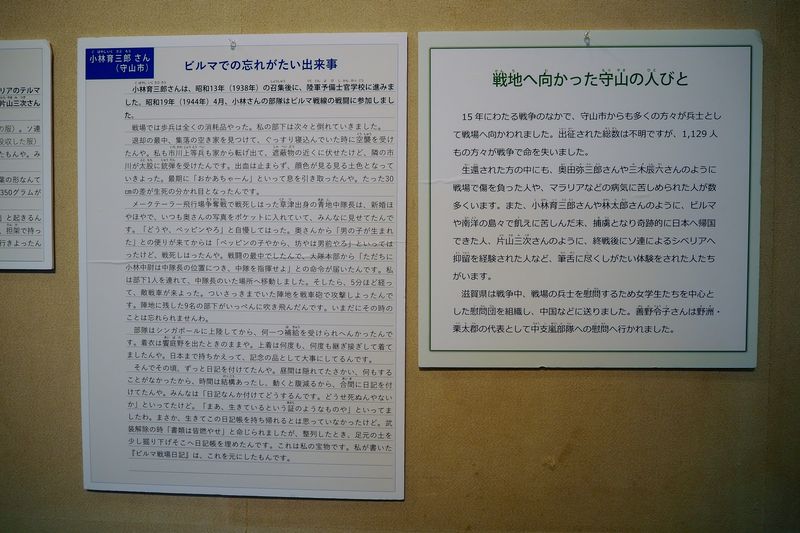 リアのテルマ
片山三次さん
の服）。ソ連
没収した服）
たもんや。み
葉の形なんて
350グラムが
」と起きるん
、担架で持っ
行きよったん
小林育三郎 さん
（守山市）
ビルマでの忘れがたい出来事
小林育三郎さんは、昭和13年（1938年）の召集後に、陸軍予備士官学校に進みま
した。昭和19年（1944年）4月、小林さんの部隊はビルマ戦線の戦闘に参加しまし
た。
戦場では歩兵は全くの消耗品やった。私の部下は次々と倒れていきました。
退却の最中、集落の空き家を見つけて、ぐっすり寝込んでいた時に空襲を受け
たんや。私も市川上等兵も家から転げ出て、遮蔽物の近くに伏せたけど、隣の市
川が太股に銃弾を受けたんです。出血は止まらず、顔色が見る見る土色となって
いきよった。最期に「おかあちゃーん」といって息を引き取ったんや。たった30
cmの差が生死の分かれ目となったんです。
メークテーラー飛行場争奪戦で戦死しはった草津出身の青地中隊長は、新婚ほ
やほやで、いつも奥さんの写真をポケットに入れていて、みんなに見せてたんで
す。「どうや、ベッピンやろ」と自慢してはった。奥さんから「男の子が生まれ
た」との便りが来てからは「ベッピンの子やから、坊やは男前やろ」といっては
ったけど、戦死しはったんや。戦闘の最中でしたんで、大隊本部から「ただちに
小林中尉は中隊長の位置につき、中隊を指揮せよ」との命令が届いたんです。私
は部下1人を連れて、中隊長のいた場所へ移動しました。そしたら、5分ほど経っ
て、敵戦車が来よった。ついさっきまでいた陣地を戦車砲で攻撃しよったんで
す。陣地に残した9名の部下がいっぺんに吹き飛んだんです。いまだにその時の
ことは忘れられませんわ。
部隊はシンガポールに上陸してから、何一つ補給を受けられへんかったんで
す。着衣は饗庭野を出たときのままや。上着は何度も、何度も継ぎ接ぎして着て
てましたんや。日本まで持ちかえって、記念の品として大事にしてるんです。
そんでその頃、ずっと日記を付けてたんや。昼間は隠れてたさかい、何もする
ことがなかったから、時間は結構あったし、動くと腹減るから、合間に日記を付
けてたんや。みんなは「日記なんか付けてどうするんです。どうせ死ぬんやない
か」といってたけど。「まあ、生きているという証のようなものや」といってま
したわ。まさか、生きてこの日記帳を持ち帰れるとは思っていなかったけど。武
装解除の時「書類は皆燃やせ」と命じられましたが、整列したとき、足元の土を
少し掘り下げそこへ日記帳を埋めたんです。これは私の宝物です。私が書いた
『ビルマ戦場日記』は、これを元にしたもんです。
戦地へ向かった守山の人びと
15年にわたる戦争のなかで、守山市からも多くの方々が兵士とし
て戦場へ向かわれました。出征された総数は不明ですが、1,129人
もの方々が戦争で命を失いました。
生還された方の中にも、奥田弥三郎さんや三木辰六さんのように
戦場で傷を負った人や、マラリアなどの病気に苦しめられた人が数
多くいます。また、小林育三郎さんや林太郎さんのように、ビルマ
や南洋の島々で飢えに苦しんだ末、捕虜となり奇跡的に日本へ帰国
できた人、片山三次さんのように、終戦後にソ連によるシベリアへ
抑留を経験された人など、筆舌に尽くしがたい体験をされた人たち
がいます。
滋賀県は戦争中、戦場の兵士を慰問するため女学生たちを中心と
した慰問団を組織し、中国などに送りました。善野令子さんは野洲・
栗太郡の代表として中支嵐部隊への慰問へ行かれました。